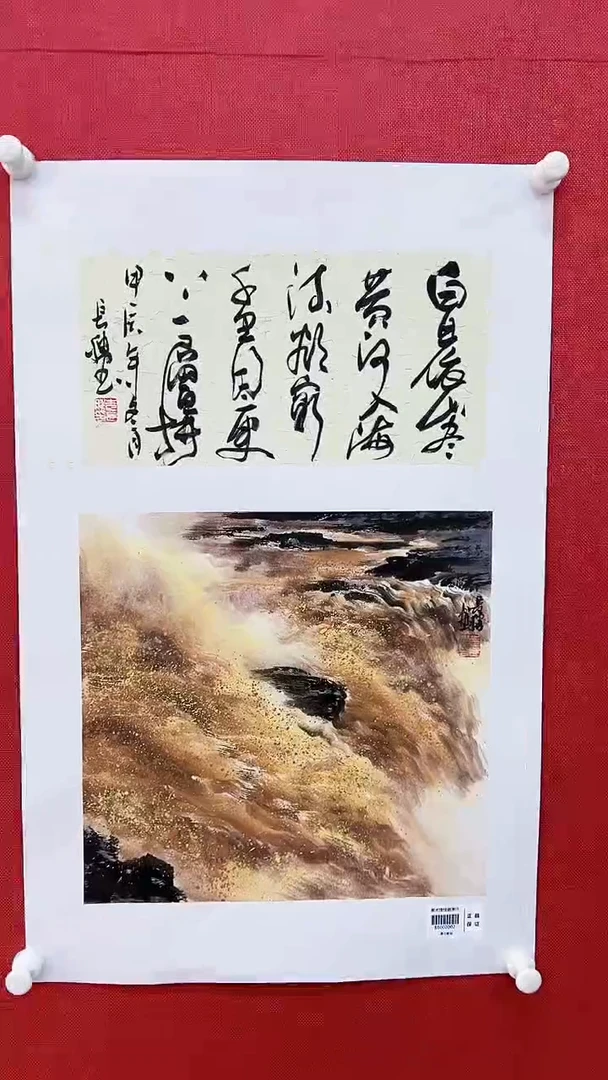 白日依山尽
黄河入海
流欲穷
千里目更
上一层楼
甲辰年
正品
保证